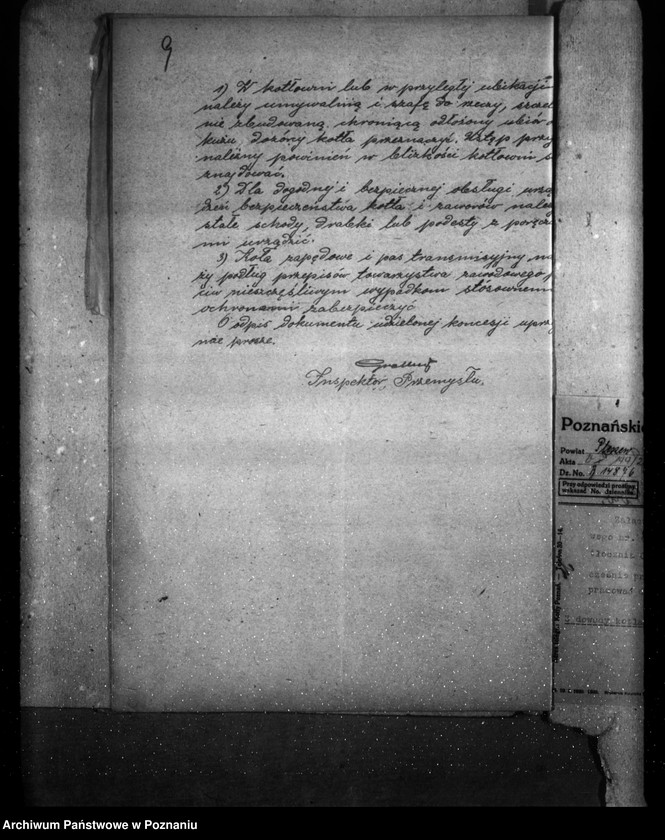 9
1) W kotłowni lub w przyległej ubikacji
należy umywalnią i szafę do rzeczy, szczel
nie zbudowaną, chroniącą odłożony ubiór o
kużu, dozórcy kotła przeznaczyć. Ustęp przy
należny powinien w blizkości kotłowni s
znajdować.
2) Dla dogodnej i bezpiecznej obsługi urzą
dzeń bezpieczeństwa kotła i zaworów nale
stałe schody, drabki lub podesty z poręcza
mi urządzić.
3) Koła zapędowe i pas transmisyjny na
ży podług przepisów towarzystwa zawodowego p
ciw nieszczęśliwym wypadkom stósownemi
ochronami zabezpieczyć
O odpis dokumentu udzielonej koncesji uprzej
nie proszę.
Inspektor Przemysłu.
Poznański
Powiat
Akta
Dz. No. 14846
Przy odpowiedzi prosimy
wskazać No. dziennika.
wego nr.
tłocznie
cześnie pr
pracować
dowury kotła
Archiwum Państwowe w Poznaniu